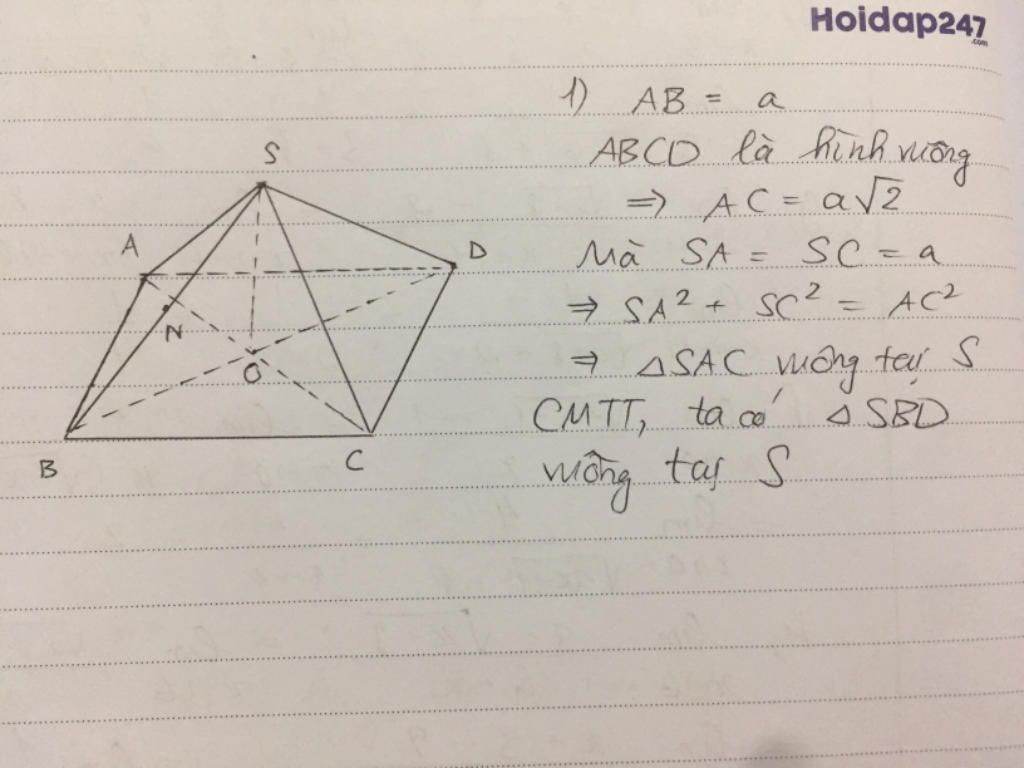 Hoidap247
.com
1) AB = a
ABCD là hình vuông
⇒ AC = a√2
Mà SA = SC = a
⇒ SA² + SC² = AC²
⇒ △SAC vuông tại S
CMTT, ta có △SBD
vuông tại S
S
A
D
N
O
B
C